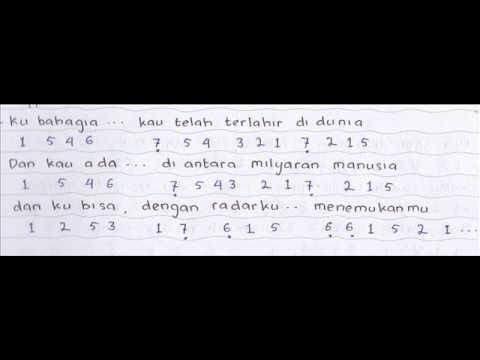 - ku bahagia ... kau telah terlahir di dunia
1 5 4 6 7̣ 5 4 3 2 1 7̣ 2 1 5
Dan kau ada ... di antara milyaran manusia
1 5 4 6 7̣ 5 4 3 2 1 7̣ 2 1 5
dan ku bisa, dengan radarku .. menemukanmu
1 2 5 3 1 7̣ 6̣ 1 5 6̣ 6̣ 1 5 2 1 ...